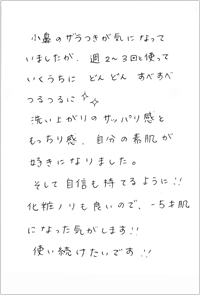 小鼻のザラつきが気になって
いましたが、週2〜3回と使って
いくうちに どんどん すべすべ
つるつるに✨
洗い上がりのサッパリ感と
もっちり感、自分の素肌が
好きになりました。
そして自信も持てるように!!
化粧ノリも良いので、-5才肌
になった気がします!!
使い続けたいです!!